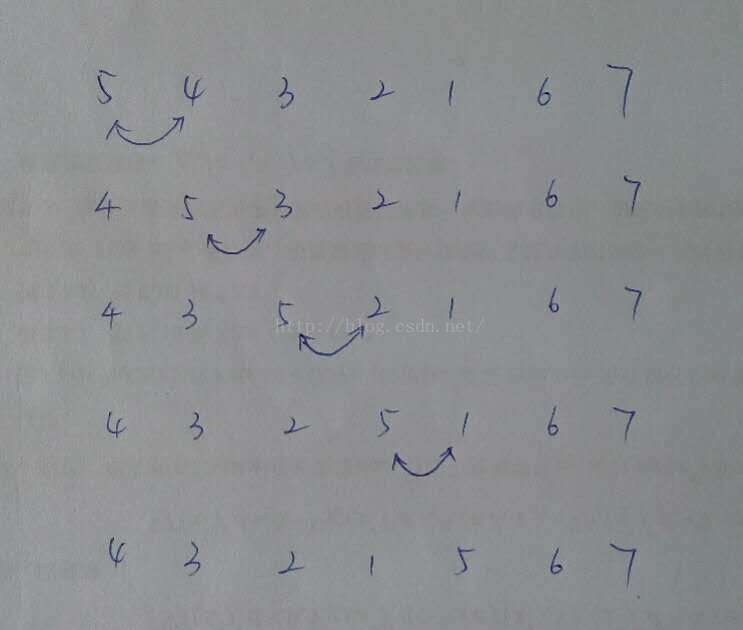 5 4 3 2 1 6 7
4 5 3 2 1 6 7
4 3 5 2 1 6 7
http://blog.csdn.net/
4 3 2 5 1 6 7
4 3 2 1 5 6 7